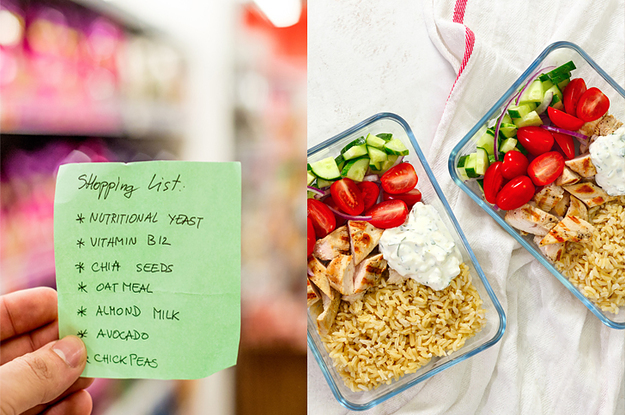 Shopping List:
* NUTRITIONAL YEAST
* VITAMIN B12
* CHIA SEEDS
* OATMEAL
* ALMOND MILK
* AVOCADO
* CHICKPEAS